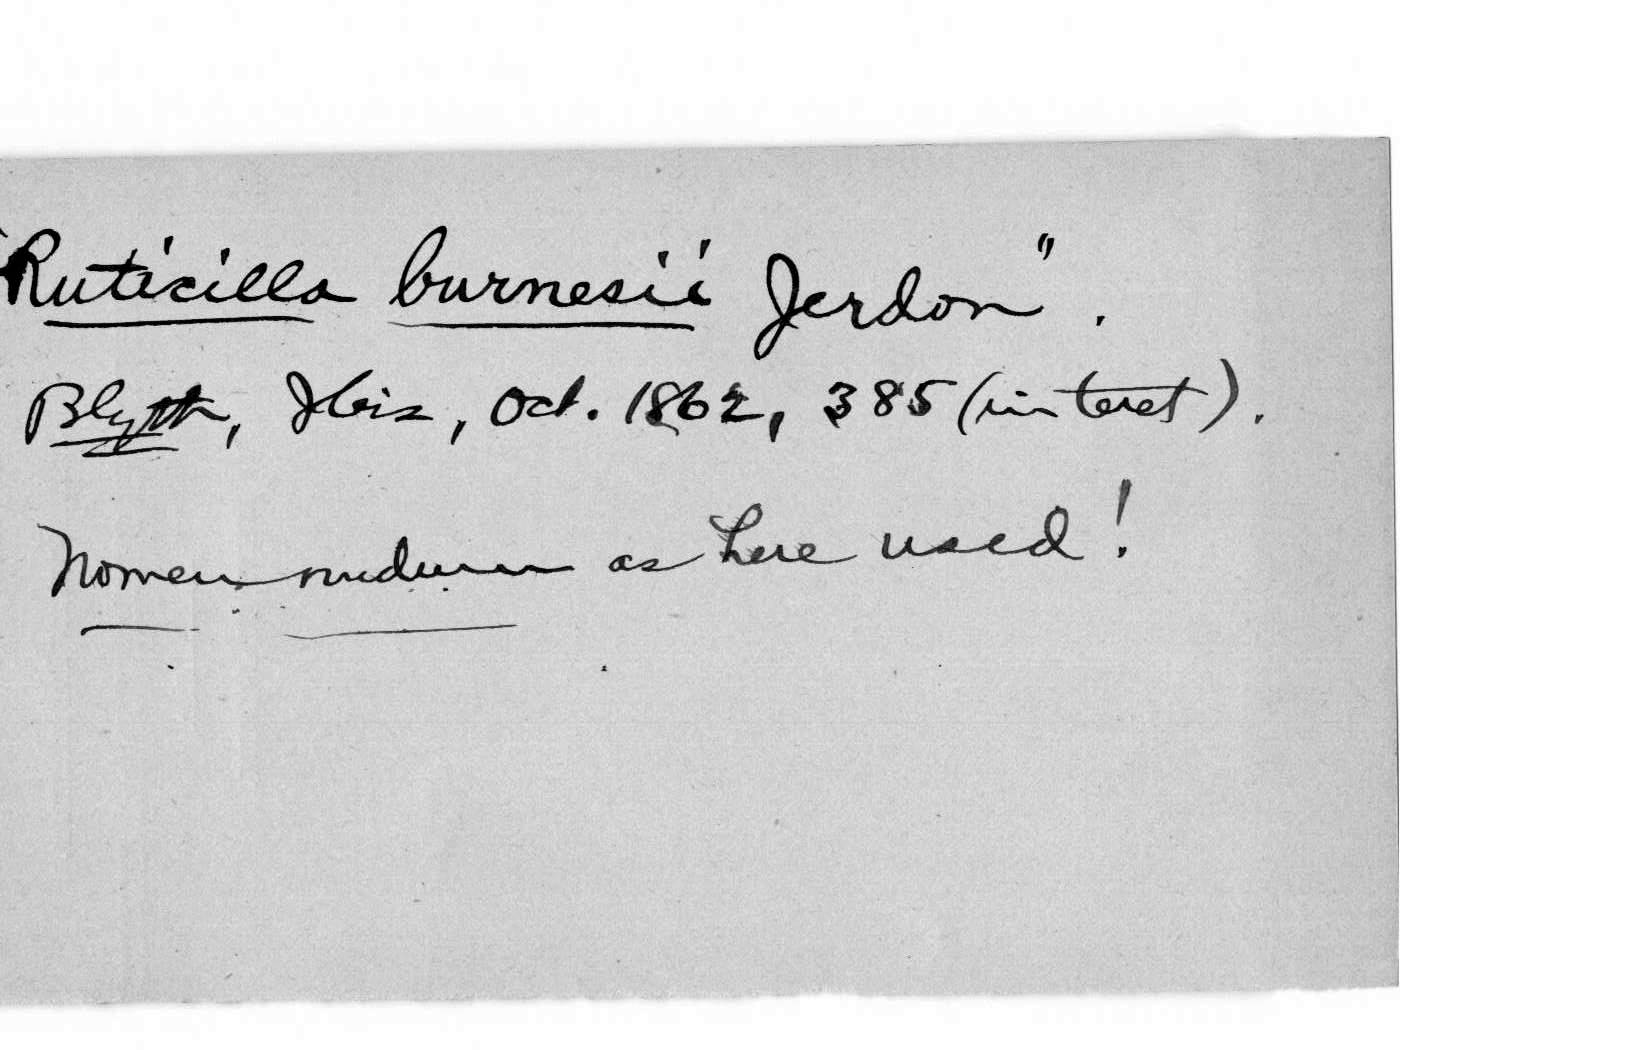 "Ruticilla burnesii Jerdon".
Blyth, Ibis, Oct. 1862, 385 (in text).
Nomen nudum as here used!